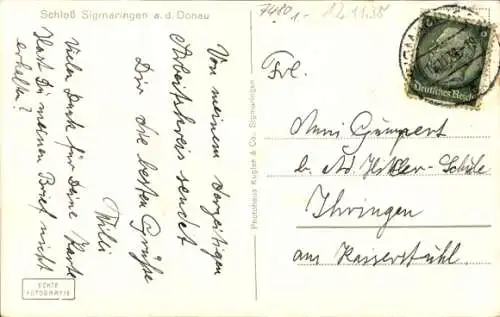 Schloß Sigmaringen a.d. Donau
7480
1-
12.11.38
Von meinem derzeitigen
Arbeitskreis sendet
Dir die besten Grüße
Willi
Vielen Dank für Deine Karte
Hast Du meinen Brief nicht
erhalten?
ECHTE
FOTOGRAFIE
Photohaus Kugler & Co., Sigmaringen
Deutsches Reich
Frl.
Anni Gümpert
b. Ad. Hitler-Schule
Ihringen
am Kaiserstühl.